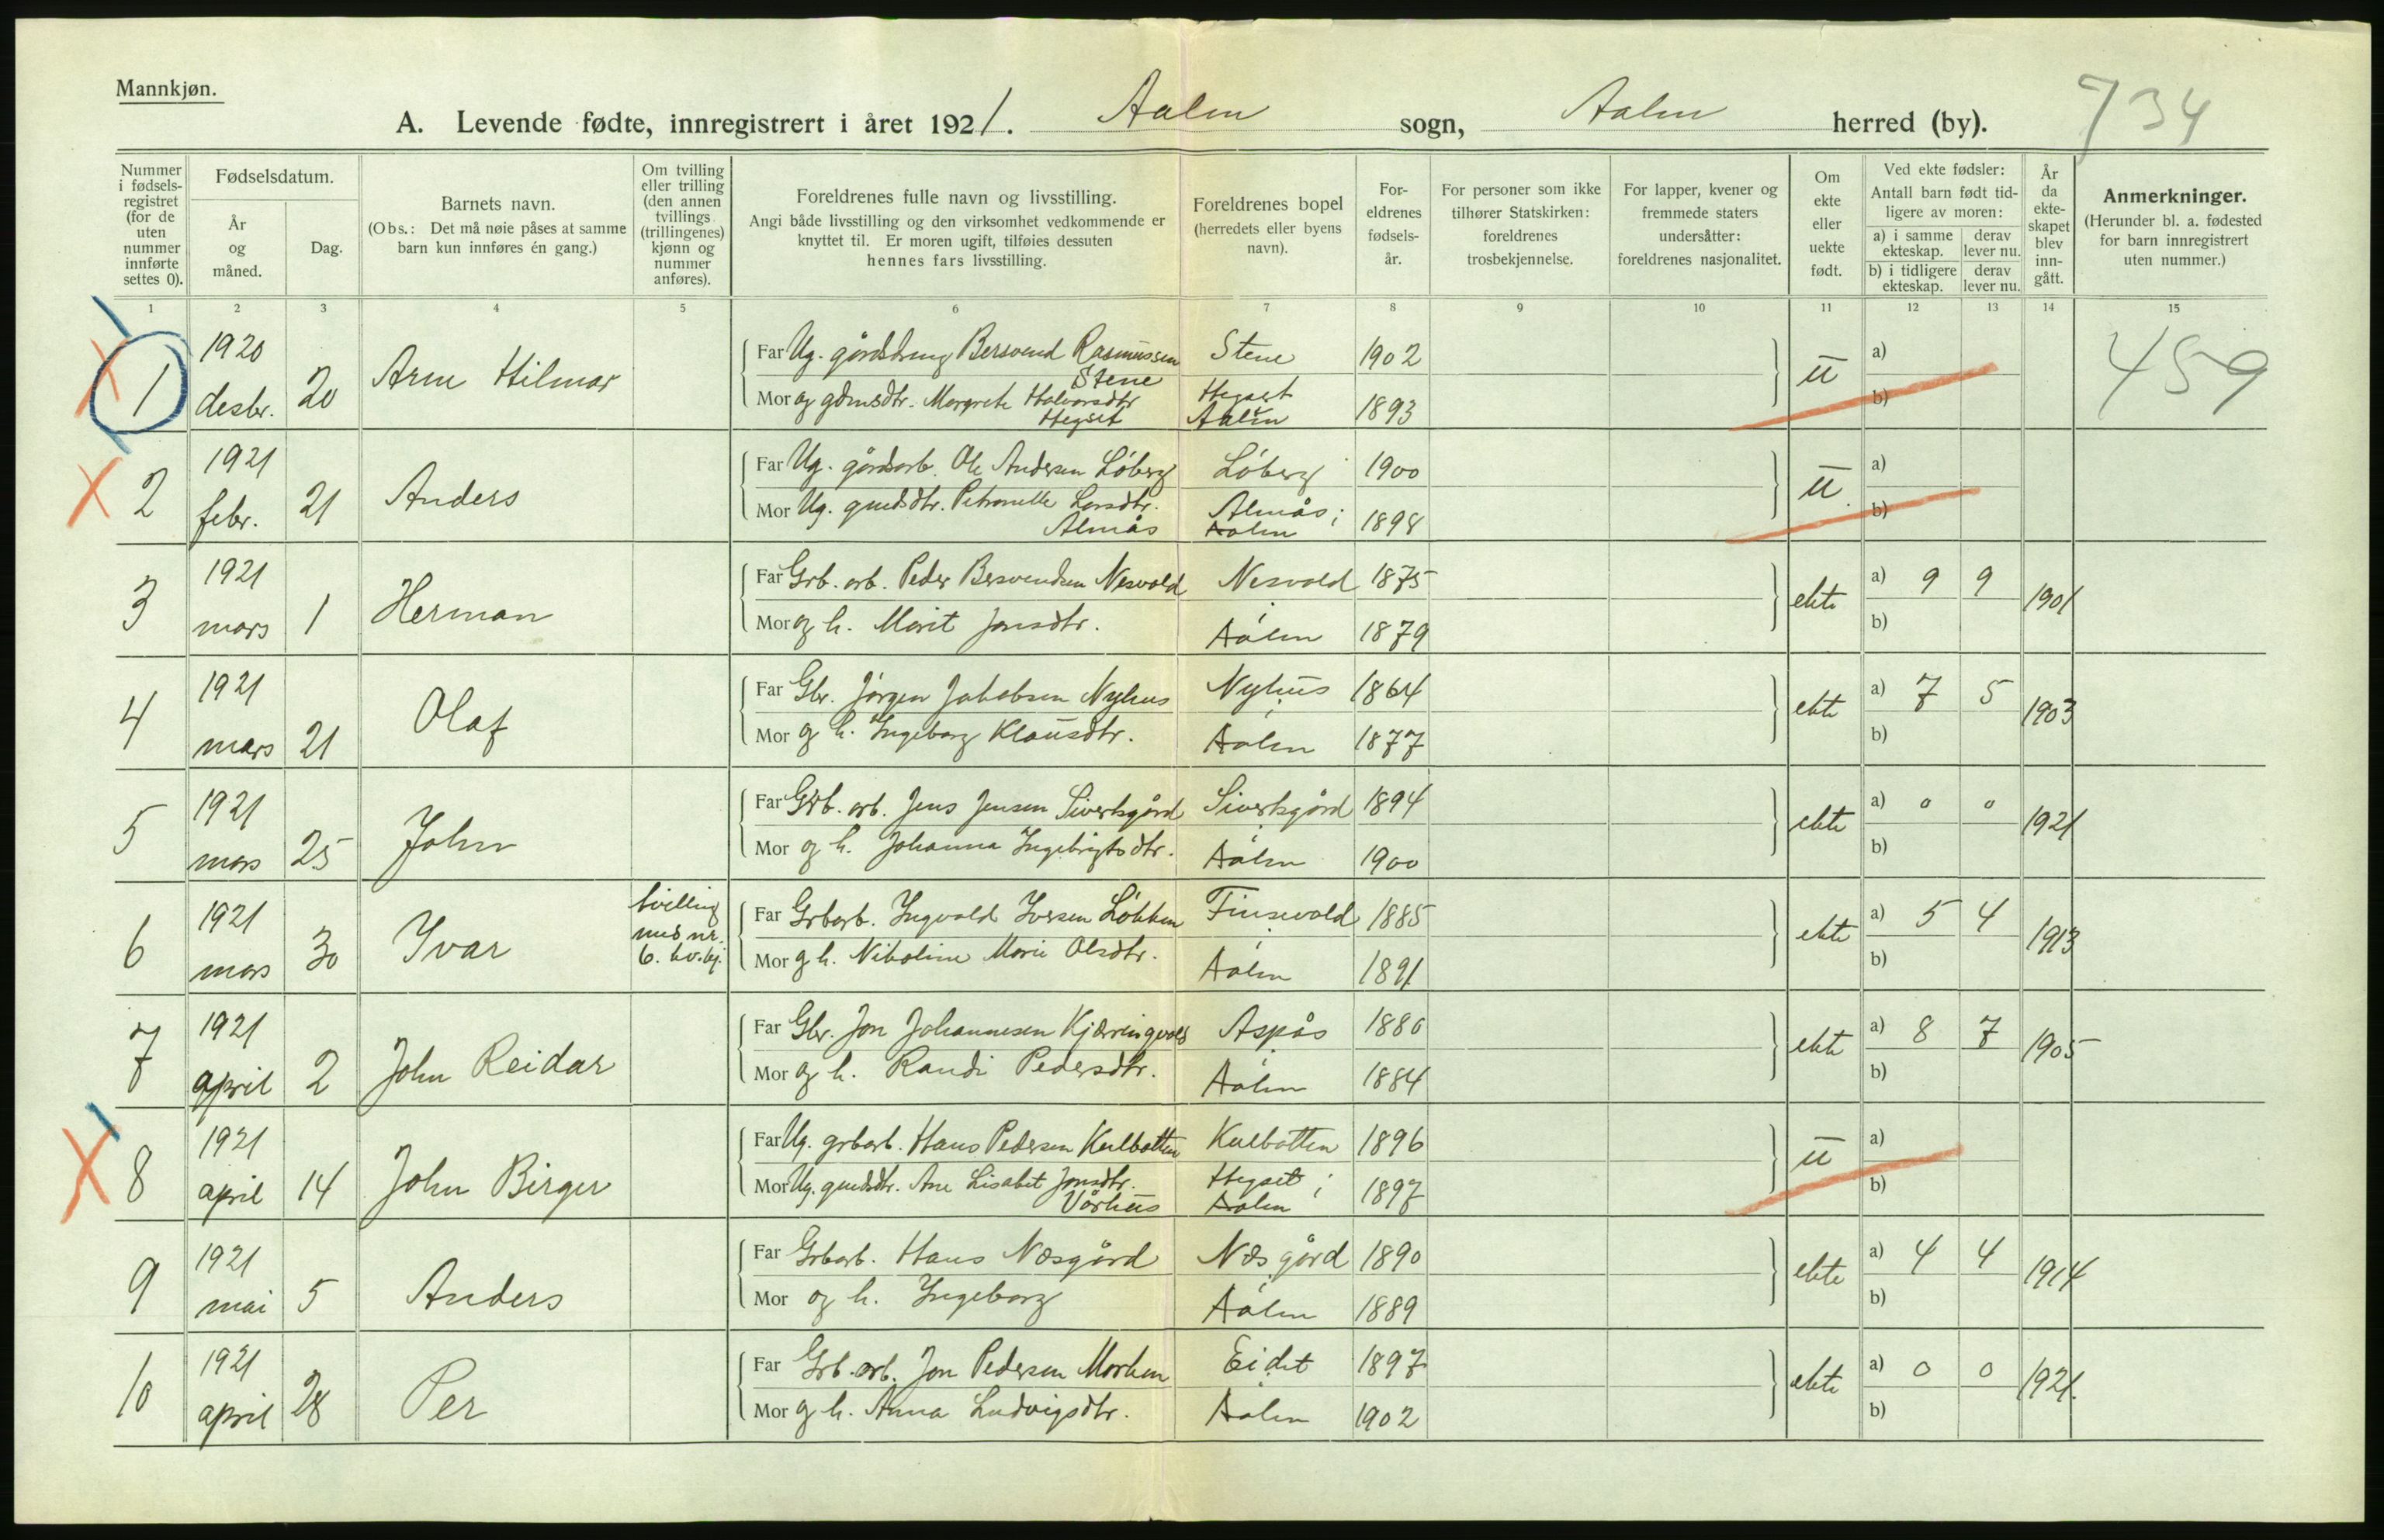 Mannkjøn.
A. Levende fødte, innregistrert i året 1921. Aalen sogn, Aalen herred (by). 734
Nummer i fødselsregistret (for de uten nummer innførte settes 0).
Fødselsdatum.
År og måned.
Dag.
Barnets navn.
(Obs.: Det må nøie påses at samme barn kun innføres én gang.)
Om tvilling eller trilling (den annen tvillings (trillingenes) kjønn og nummer anføres).
Foreldrenes fulle navn og livsstilling.
Angi både livsstilling og den virksomhet vedkommende er knyttet til. Er moren ugift, tilføies dessuten hennes fars livsstilling.
Foreldrenes bopel (herredets eller byens navn).
Foreldrenes fødselsår.
For personer som ikke tilhører Statskirken: foreldrenes trosbekjennelse.
For lapper, kvener og fremmede staters undersåtter: foreldrenes nasjonalitet.
Om ekte eller uekte født.
Ved ekte fødsler:
Antall barn født tidligere av moren:
a) i samme ekteskap. derav lever nu.
b) i tidligere ekteskap. derav lever nu.
År da ekteskapet blev inngått.
Anmerkninger.
(Herunder bl. a. fødested for barn innregistrert uten nummer.)
1 2 3 4 5 6 7 8 9 10 11 12 13 14 15
1 1920 desbr. 20 Arne Hilmar
Far Ug. gårdsdreng Bersvend Rasmussen Stene Stene 1902 u a) 459
Mor og gdmsdtr. Margrete Halvorsdtr Hegset Hegset Aalen 1893 b)
2 1921 febr. 21 Anders
Far Ug. gårdsarb. Ole Andersen Løberg Løberg 1900 u a)
Mor Ug. gmdsdtr. Petronelle Larsdtr. Almås Almås i Aalen 1898 b)
3 1921 mars 1 Herman
Far Grb. arb. Peder Bersvendsen Nesvold Nesvold 1875 ekte a) 9 9 1901
Mor og h. Marit Jonsdtr. i Aalen 1879 b)
4 1921 mars 21 Olaf
Far Gbr. Jørgen Jakobsen Nyhus Nyhus 1864 ekte a) 7 5 1903
Mor og h. Ingeborg Klausdtr. i Aalen 1877 b)
5 1921 mars 25 John
Far Grb. arb. Jens Jensen Sivertsgård Sivertsgård 1894 ekte a) 0 0 1921
Mor og h. Johanna Ingebrigtsdtr. i Aalen 1900 b)
6 1921 mars 30 Ivar tvilling med nr. 6. kv.kj.
Far Grbarb. Ingvald Iversen Løkken Finsevold 1885 ekte a) 5 4 1913
Mor og h. Nikoline Marie Olsdtr. i Aalen 1891 b)
7 1921 april 2 John Reidar
Far Gbr. Jon Johannesen Kjæringvold Aspås 1880 ekte a) 8 7 1905
Mor og h. Randi Pedersdtr. i Aalen 1884 b)
8 1921 april 14 John Birger
Far Ug. grbarb. Hans Pedersen Kulbotten Kulbotten 1896 u a)
Mor Ug. gmdsdtr. Ane Lisabet Jonsdtr. Vårhus Hegset i Aalen 1897 b)
9 1921 mai 5 Anders
Far Grbarb. Hans Næsgård Næsgård 1890 ekte a) 4 4 1914
Mor og h. Ingeborg i Aalen 1889 b)
10 1921 april 28 Per
Far Grb. arb. Jon Pedersen Morken Eidet 1897 ekte a) 0 0 1921.
Mor og h. Anna Ludvigsdtr. i Aalen 1902 b)